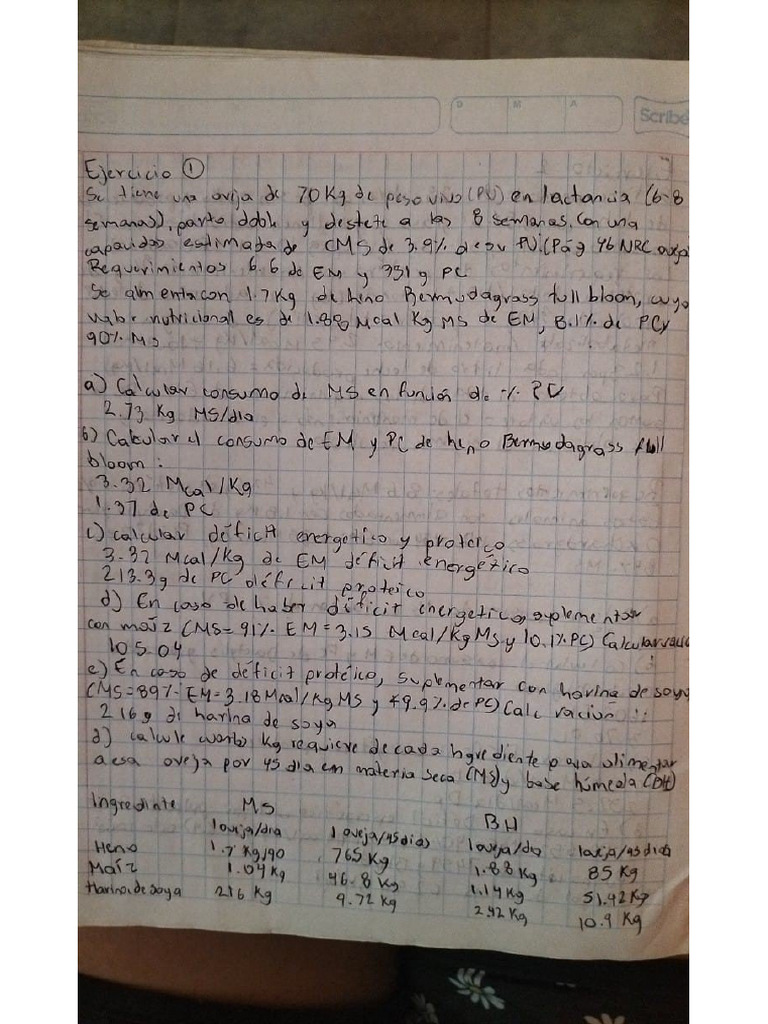 D M A
Scribe
Ejercicio ①
Se tiene una oveja de 70Kg de peso vivo (PV) en lactancia (6-8
semanas), parto doble y destete a las 8 semanas. Con una
capacidad estimada de CMS de 3.9% de su PV. (Pág 46 NRC oveja
Requerimientos 6.6 de EM y 351 g PC
Se alimenta con 1.7Kg de heno Bermudagrass full bloom, cuyo
valor nutricional es de 1.88 Mcal Kg MS de EM, 8.1% de PC y
90% MS
a) Calcular consumo de MS en función de % PV
2.73 Kg MS/dia
b) Calcular el consumo de EM y PC de heno Bermudagrass full
bloom:
3.32 Mcal/Kg
1.37 de PC
c) calcular déficit energetico y proteico
3.32 Mcal/Kg de EM déficit energético
213.3g de PC déficit proteico
d) En caso de haber déficit energetico, suplementar
con maíz (MS=91% EM=3.15 Mcal/KgMS y 10.1% PC) Calcular
105.04
e) En caso de déficit protéico, suplementar con harina de soya
(MS=89% EM=3.18Mcal/KgMS y 49.9% de PC) Calc racion
216g de harina de soya
d) calcule cuanto Kg requiere de cada ingrediente para alimentar
a esa oveja por 45 dia en materia seca (MS) y base húmeda (BH)
Ingrediente MS BH
1 oveja/dia 1 oveja/45 dias 1 oveja/dia 1 oveja/45 dias
Heno 1.7 Kg/90 765 Kg 1.88 Kg 85 Kg
Maíz 1.04Kg 46.8 Kg 1.14 Kg 51.42 Kg
Harina de soya 216 Kg 9.72 Kg 2.42 Kg 10.9 Kg